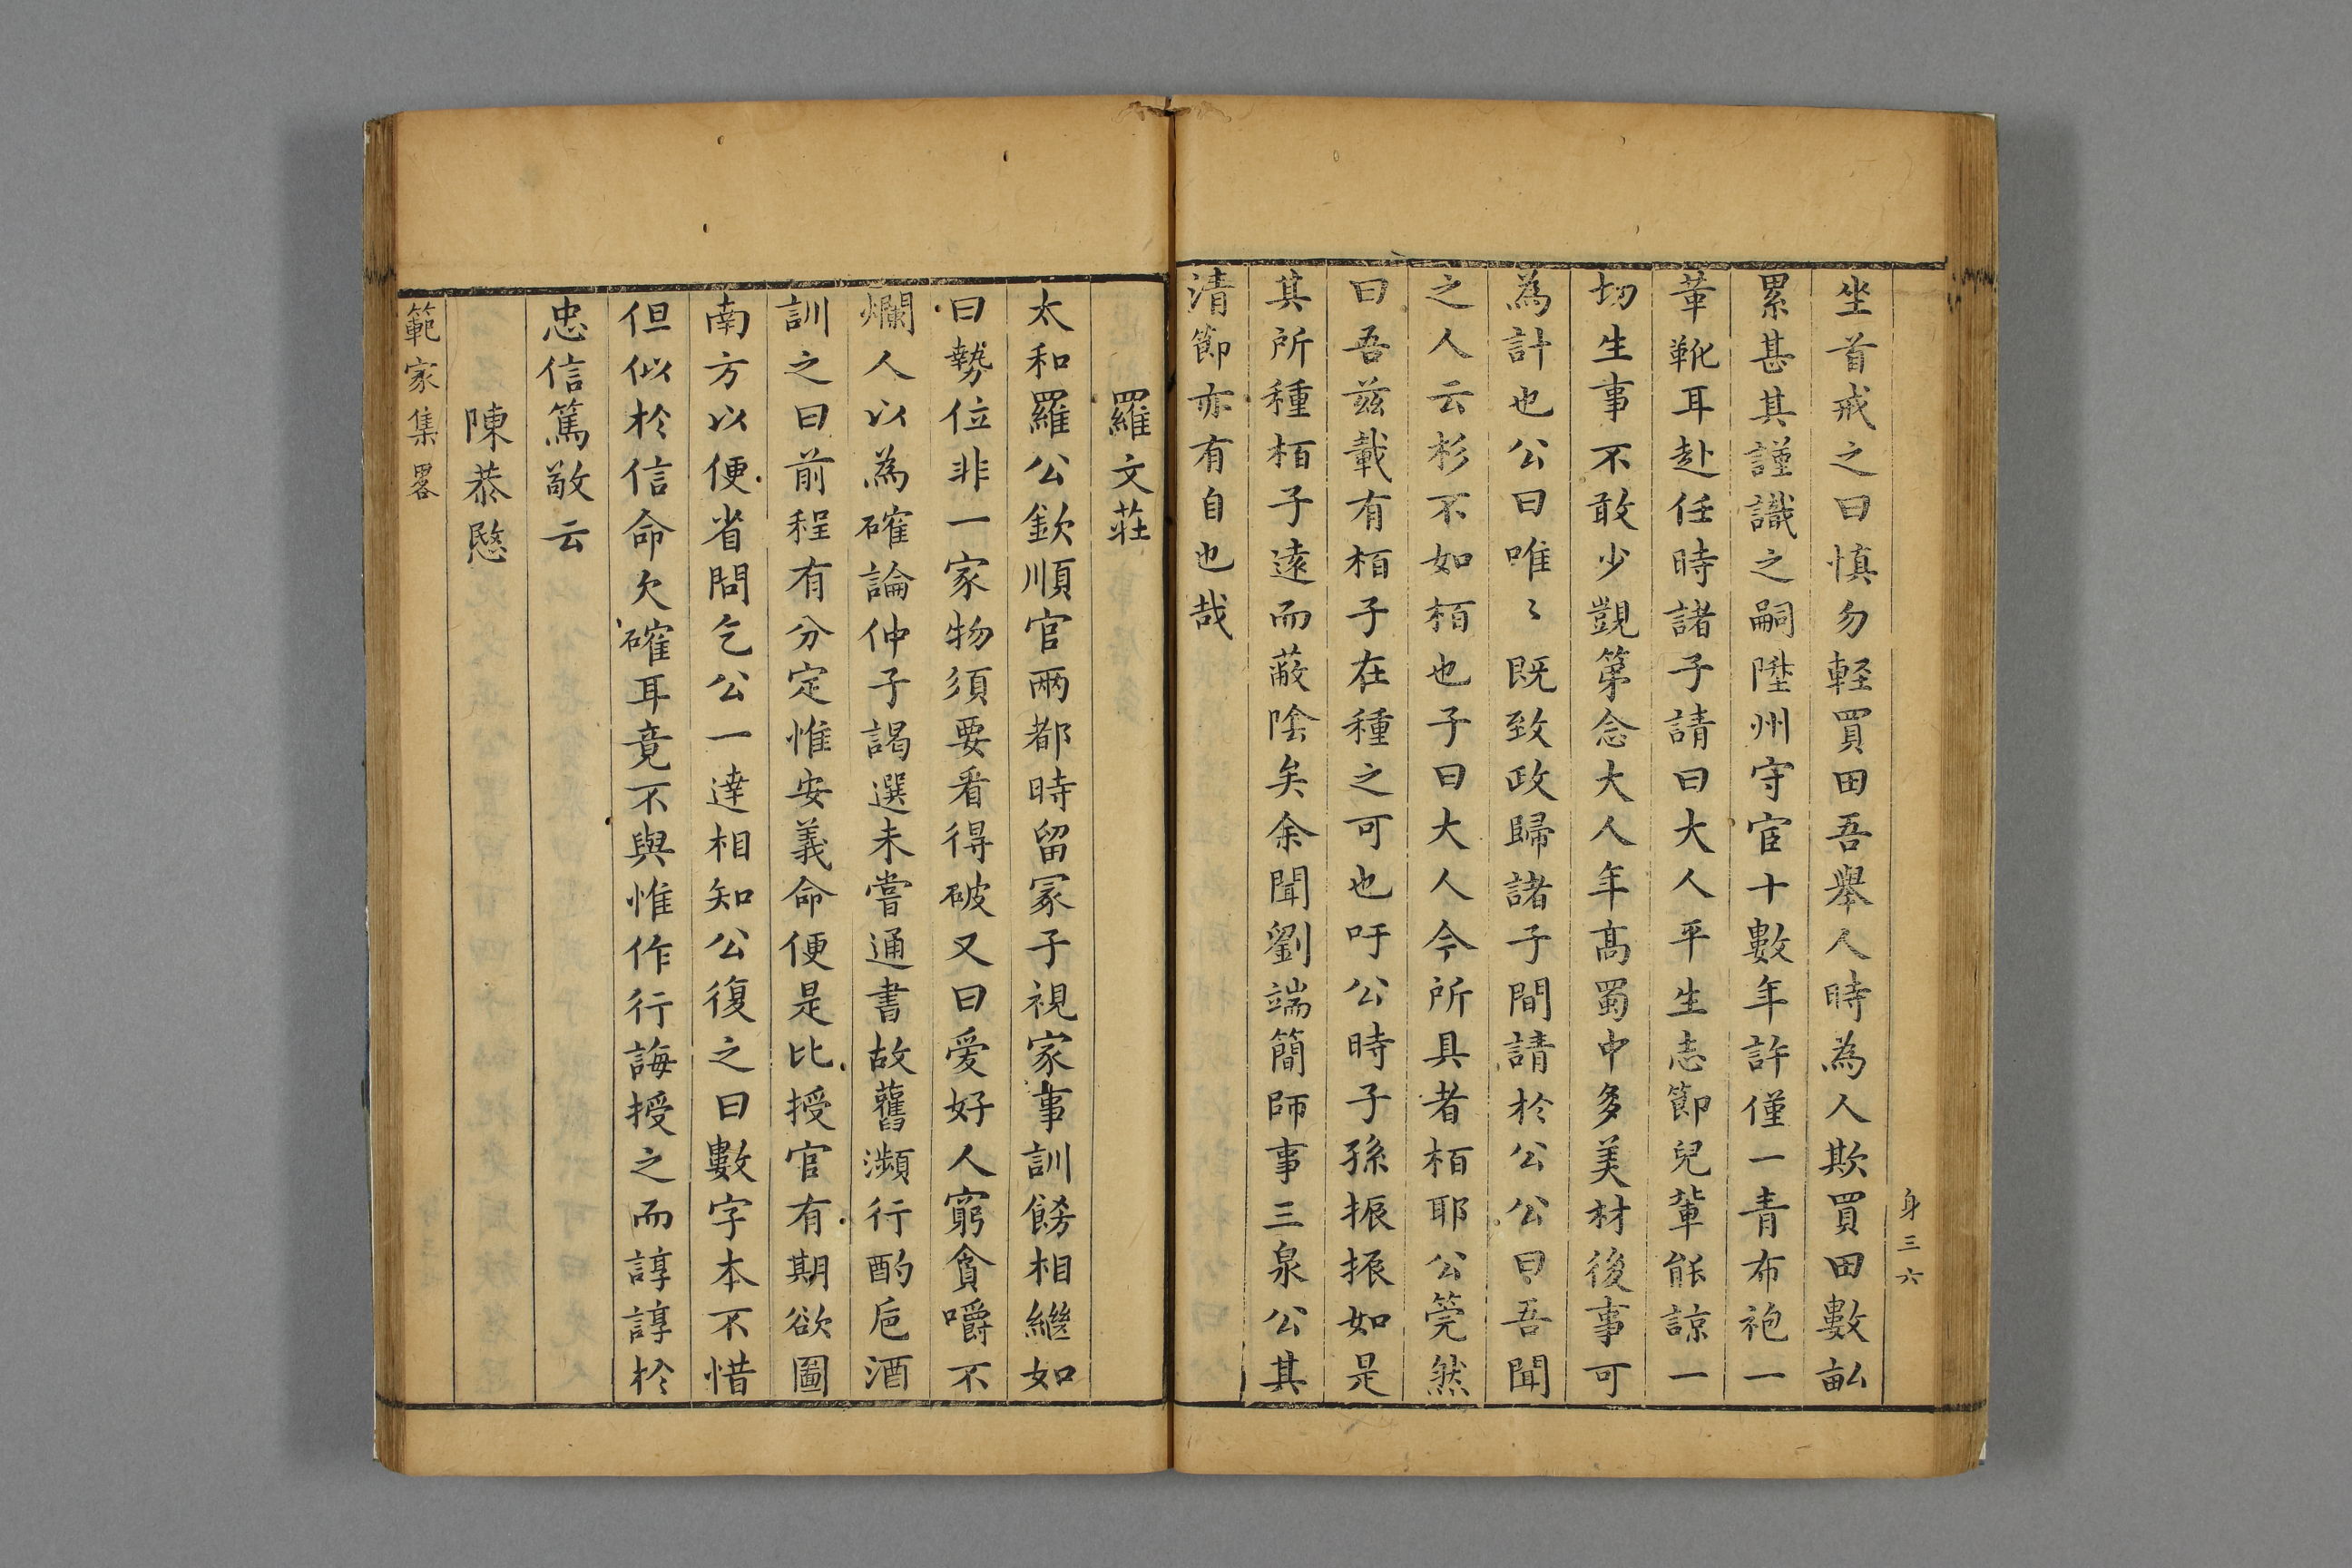 身三六
坐首戒之曰慎勿輕買田吾舉人時為人欺買田數畝
累甚其謹識之嗣陞州守宦十數年許僅一青布袍一
革靴耳赴任時諸子請曰大人平生志節兒輩能諒一
切生事不敢少覬第念大人年髙蜀中多美材後事可
為計也公曰唯〻既致政歸諸子間請於公公曰吾聞
之人云杉不如栢也子曰大人今所具者栢耶公莞然
曰吾兹載有栢子在種之可也吁公時子孫振振如是
其所種栢子遠而蔽陰矣余聞劉端簡師事三泉公其
清節亦有自也哉
羅文莊
太和羅公欽順官兩都時留冢子視家事訓餝相繼如
曰勢位非一家物須要看得破又曰爱好人窮貪嚼不
爛人以為確論仲子謁選未嘗通書故舊瀕行酌巵酒
訓之曰前程有分定惟安義命便是比授官有期欲圖
南方以便省問乞公一達相知公復之曰數字本不惜
但似於信命欠確耳竟不與惟作行誨授之而諄諄於
忠信篤敬云
陳恭愍
範家集畧